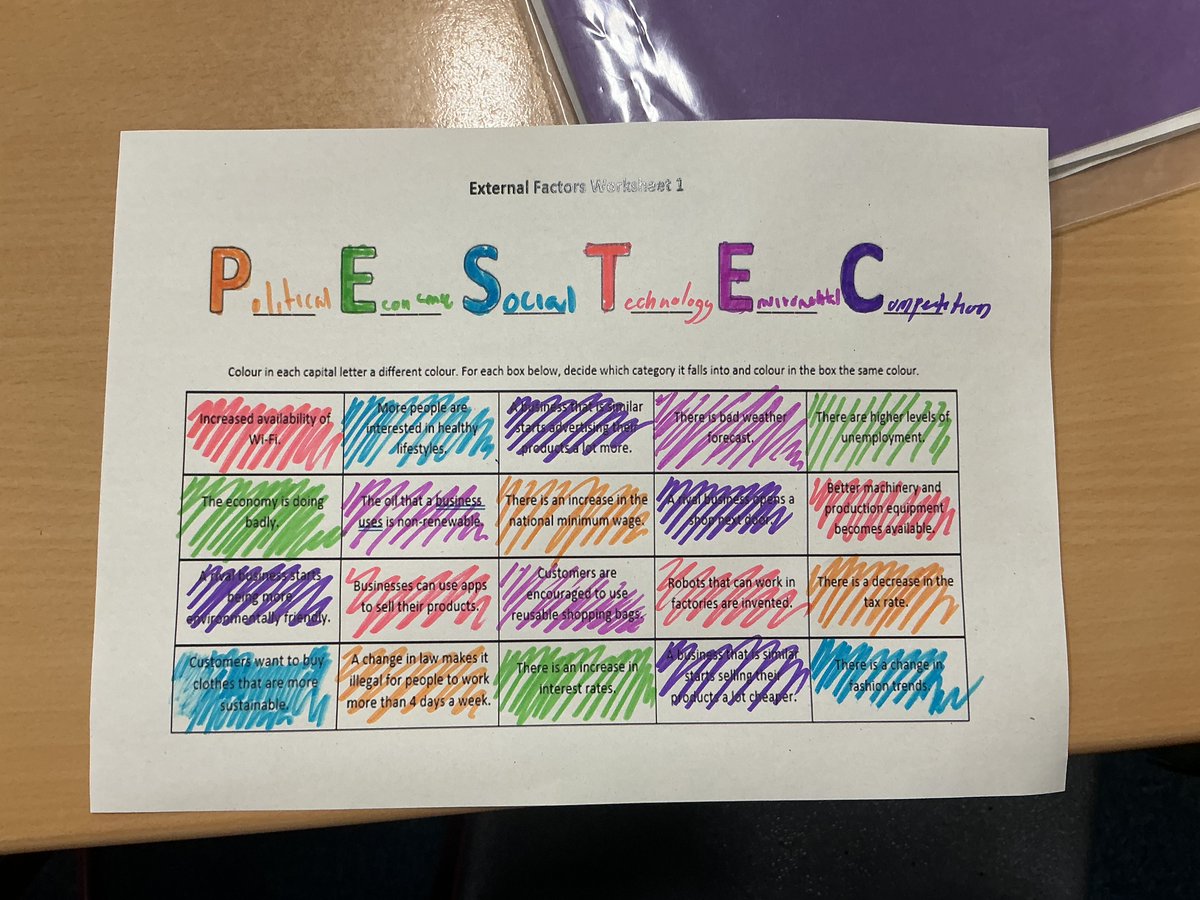 External Factors Worksheet 1
Political Economic Social Technology Environmental Competition
Colour in each capital letter a different colour. For each box below, decide which category it falls into and colour in the box the same colour.
Increased availability of
Wi-Fi.
More people are
interested in healthy
lifestyles.
A business that is similar
starts advertising their
products a lot more.
There is bad weather
forecast.
There are higher levels of
unemployment.
The economy is doing
badly.
The oil that a business
uses is non-renewable.
There is an increase in the
national minimum wage.
A rival business opens a
shop next door.
Better machinery and
production equipment
becomes available.
A rival business starts
being more
environmentally friendly.
Businesses can use apps
to sell their products.
Customers are
encouraged to use
reusable shopping bags.
Robots that can work in
factories are invented.
There is a decrease in the
tax rate.
Customers want to buy
clothes that are more
sustainable.
A change in law makes it
illegal for people to work
more than 4 days a week.
There is an increase in
interest rates.
A business that is similar
starts selling their
products a lot cheaper.
There is a change in
fashion trends.